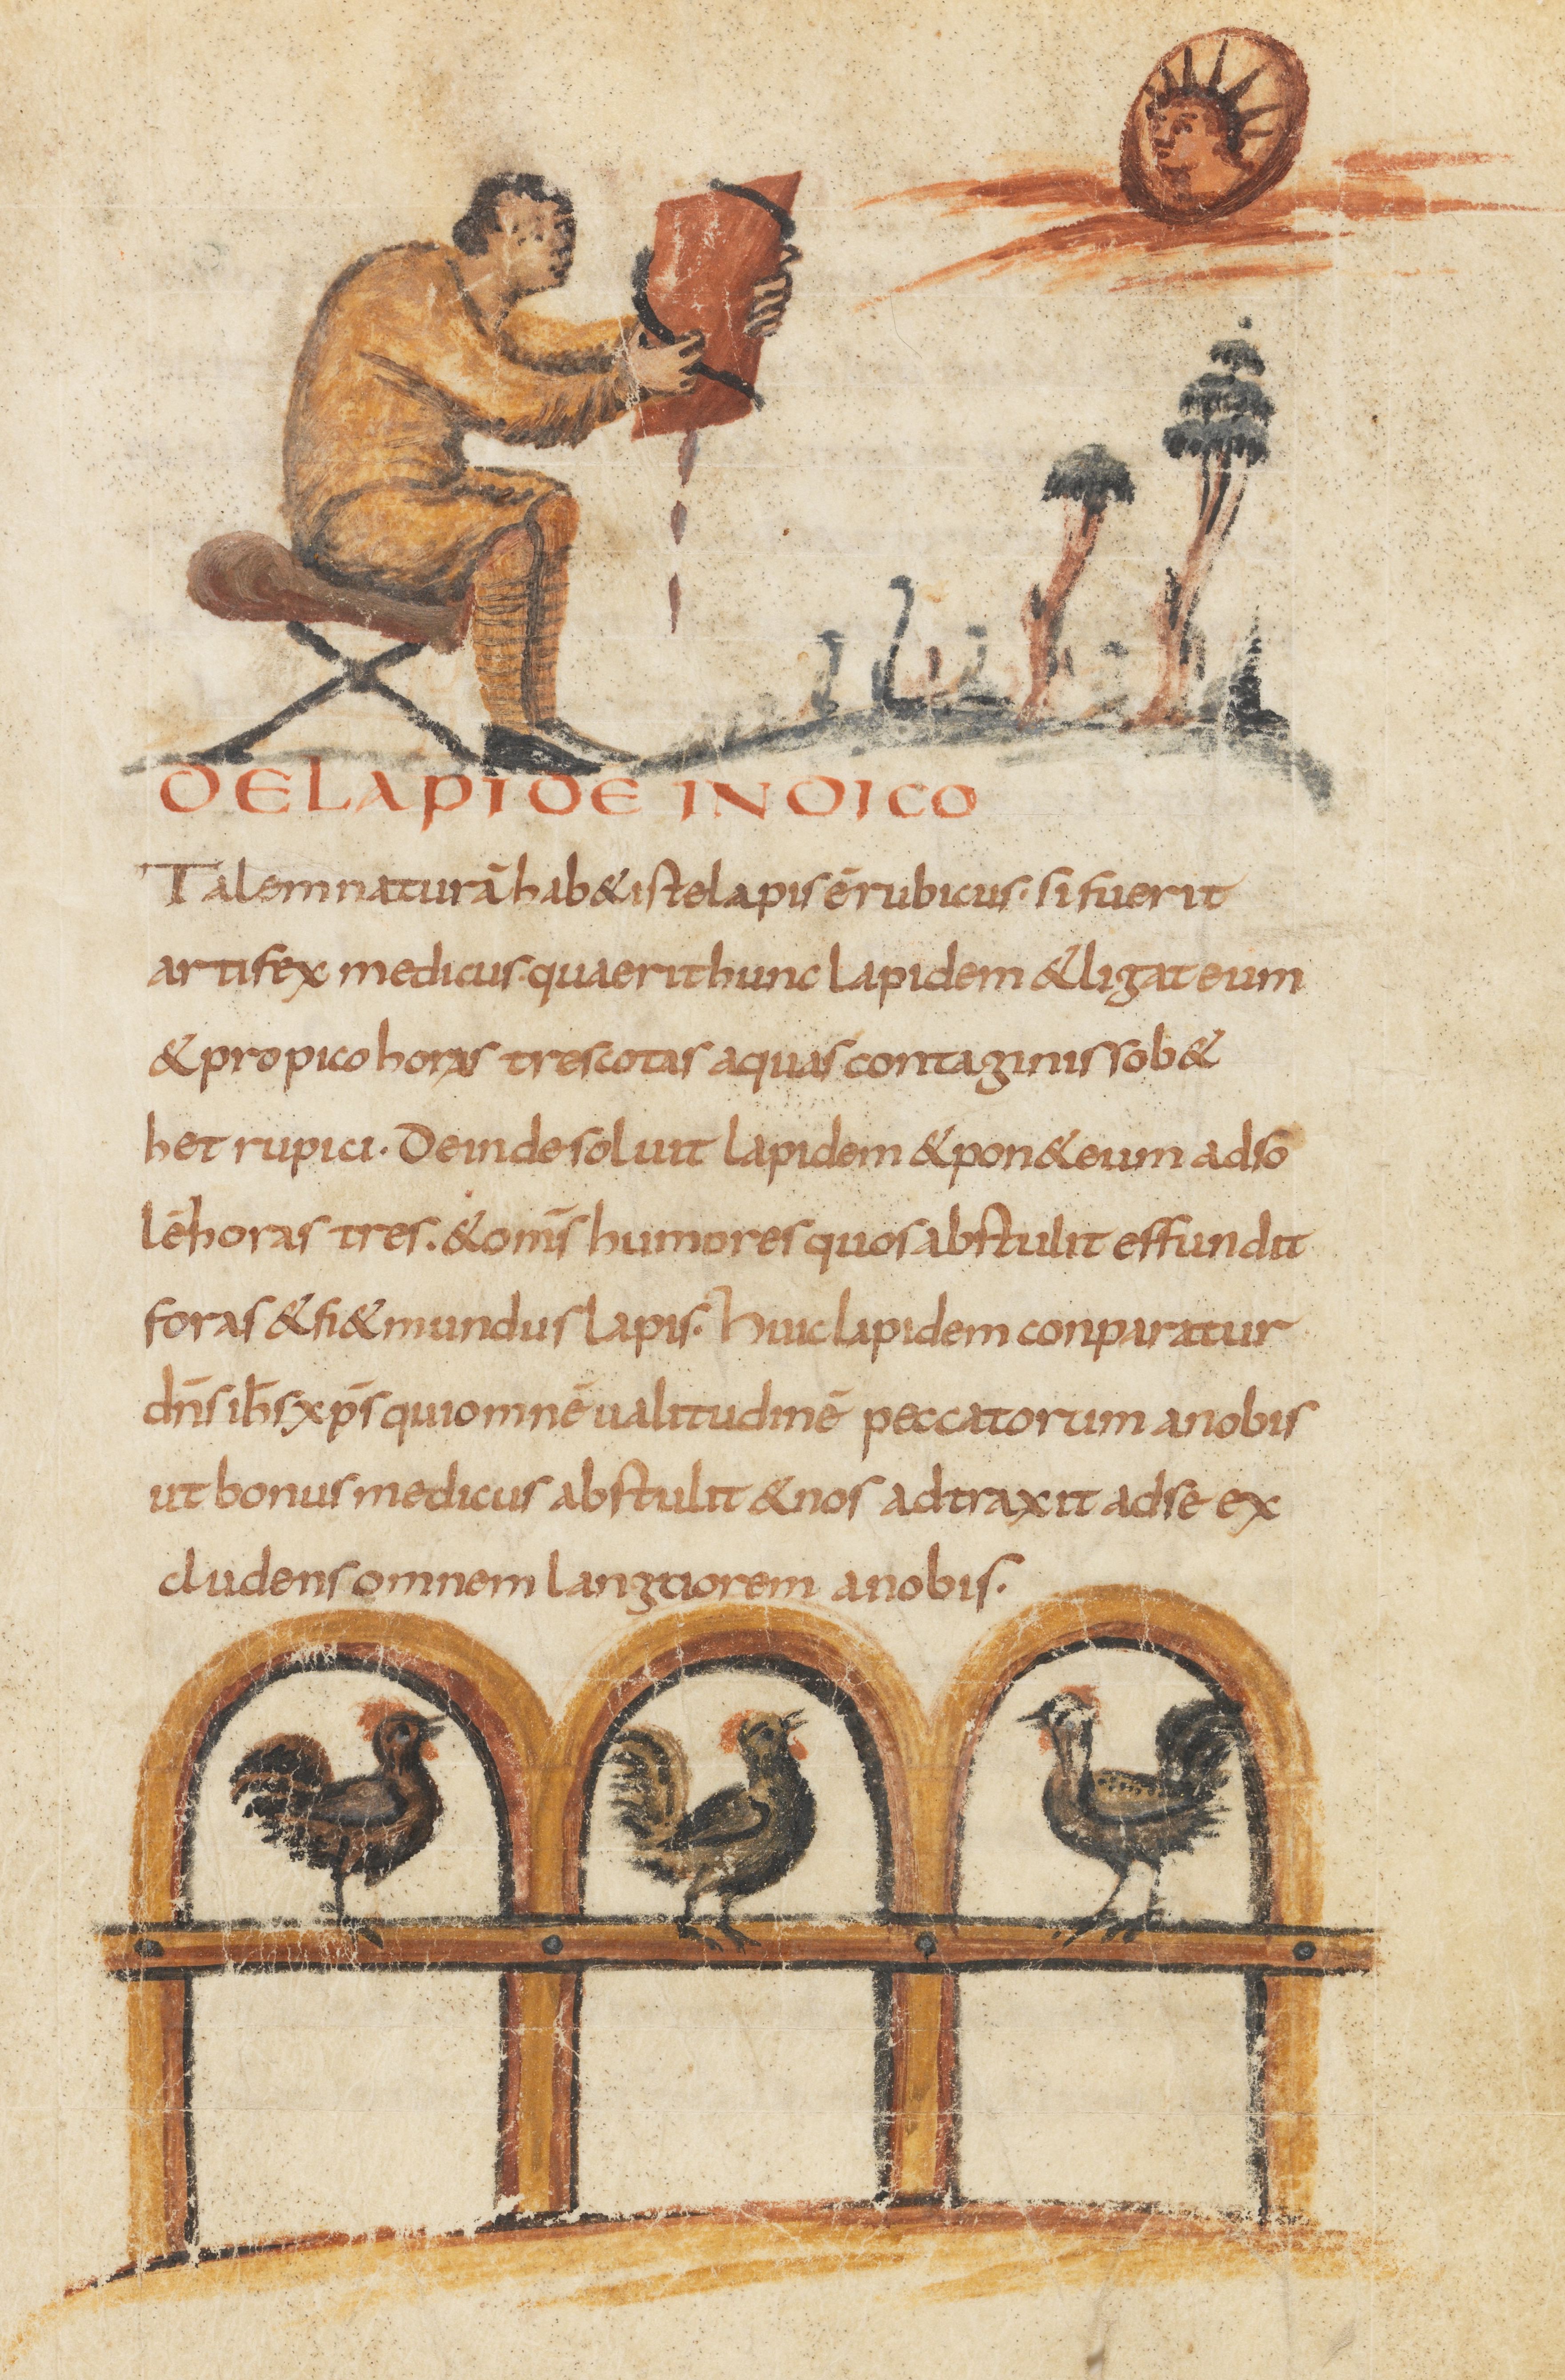 DE LAPIDE INDICO
Talem naturā hab& iste lapis ē rubicus· si fuerit
artifex medicus· quaerit hunc lapidem & ligat eum
& propico horas tres cotas aquas contaginis sob&
het rupici· Deinde soluit lapidem & pon& eum ad so
lē horas tres· & om̄s humores quos abstulit effundit
foras & fi& mundus lapis· huic lapidem conparatur
dn̄s ih̄s xp̄s qui omnē ualitudinē peccatorum a nobis
ut bonus medicus abstulit & nos adtraxit ad se ex
cludens omnem langtiorem a nobis·